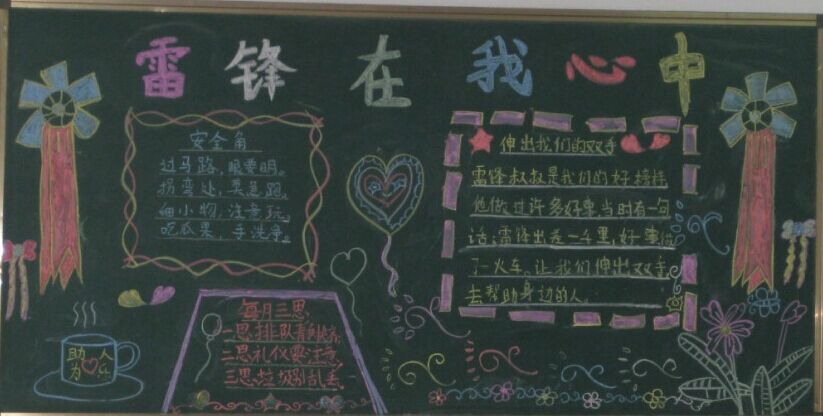 雷锋在我心中
安全角
过马路，眼要明。
拐弯处，莫急跑。
细小物，注意玩。
吃瓜果，手洗净。
伸出我们的双手
雷锋叔叔是我们的好榜样，
他做过许多好事，当时有一句
话：雷锋出差一千里，好事做
了一火车。让我们伸出双手，
去帮助身边的人。
每月三思
一思排队
二思礼仪要注意
三思垃圾别乱丢
助人
为乐